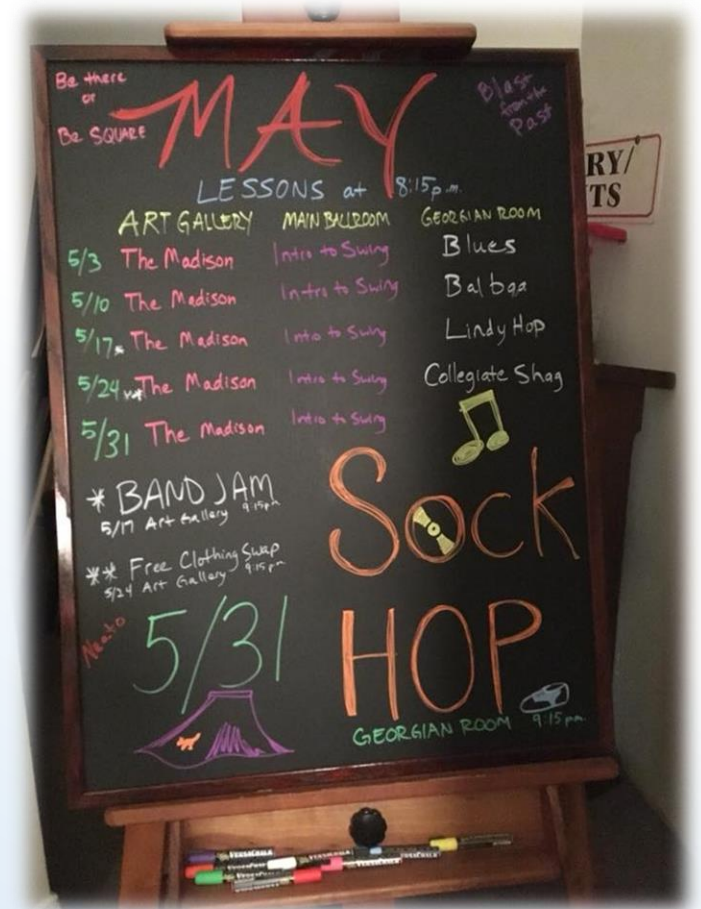 Be there
or
Be SQUARE
MAY
Blast
from the
Past
LESSONS at 8:15p.m.
ART GALLERY MAIN BALLROOM GEORGIAN ROOM
5/3 The Madison Intro to Swing Blues
5/10 The Madison Intro to Swing Balboa
5/17* The Madison Intro to Swing Lindy Hop
5/24** The Madison Intro to Swing Collegiate Shag
5/31 The Madison Intro to Swing
* BAND JAM
5/17 Art Gallery 9:15pm
** Free Clothing Swap
5/24 Art Gallery 9:15pm
Sock
HOP
Neato
5/31
GEORGIAN ROOM 9:15pm.
RY/
TS